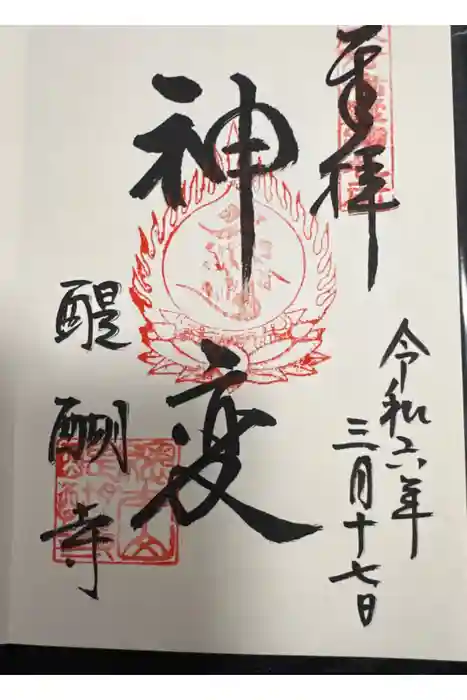 奉拝
令和六年
三月十七日
神変
醍醐寺